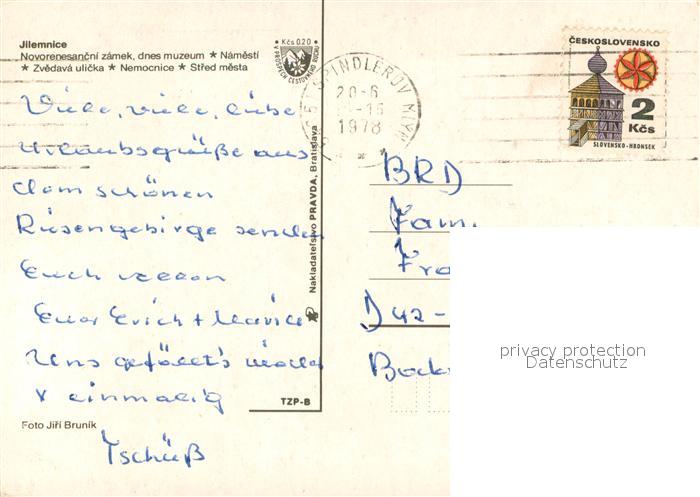 Jilemnice
Novorenesanční zámek, dnes muzeum ★ Náměstí
★ Zvědavá ulička ★ Nemocnice ★ Střed města
Kčs 0,20
V PROSPĚCH CESTOVNÍHO RUCHU
ŠPINDLERŮV MLÝN
20-6
1978
ČESKOSLOVENSKO
2
Kčs
SLOVENSKO-HRONSEK
Viele, viele, liebe
Urlaubsgrüße aus
dem schönen
Riesengebirge senden
Euch
Euer Erich +
Uns gefällt's
einmalig
Tschüß
Nakladatelstvo PRAVDA, Bratislava
TZP-B
Foto Jiří Bruník
BRD
Fam.
D 42-
privacy protection
Datenschutz